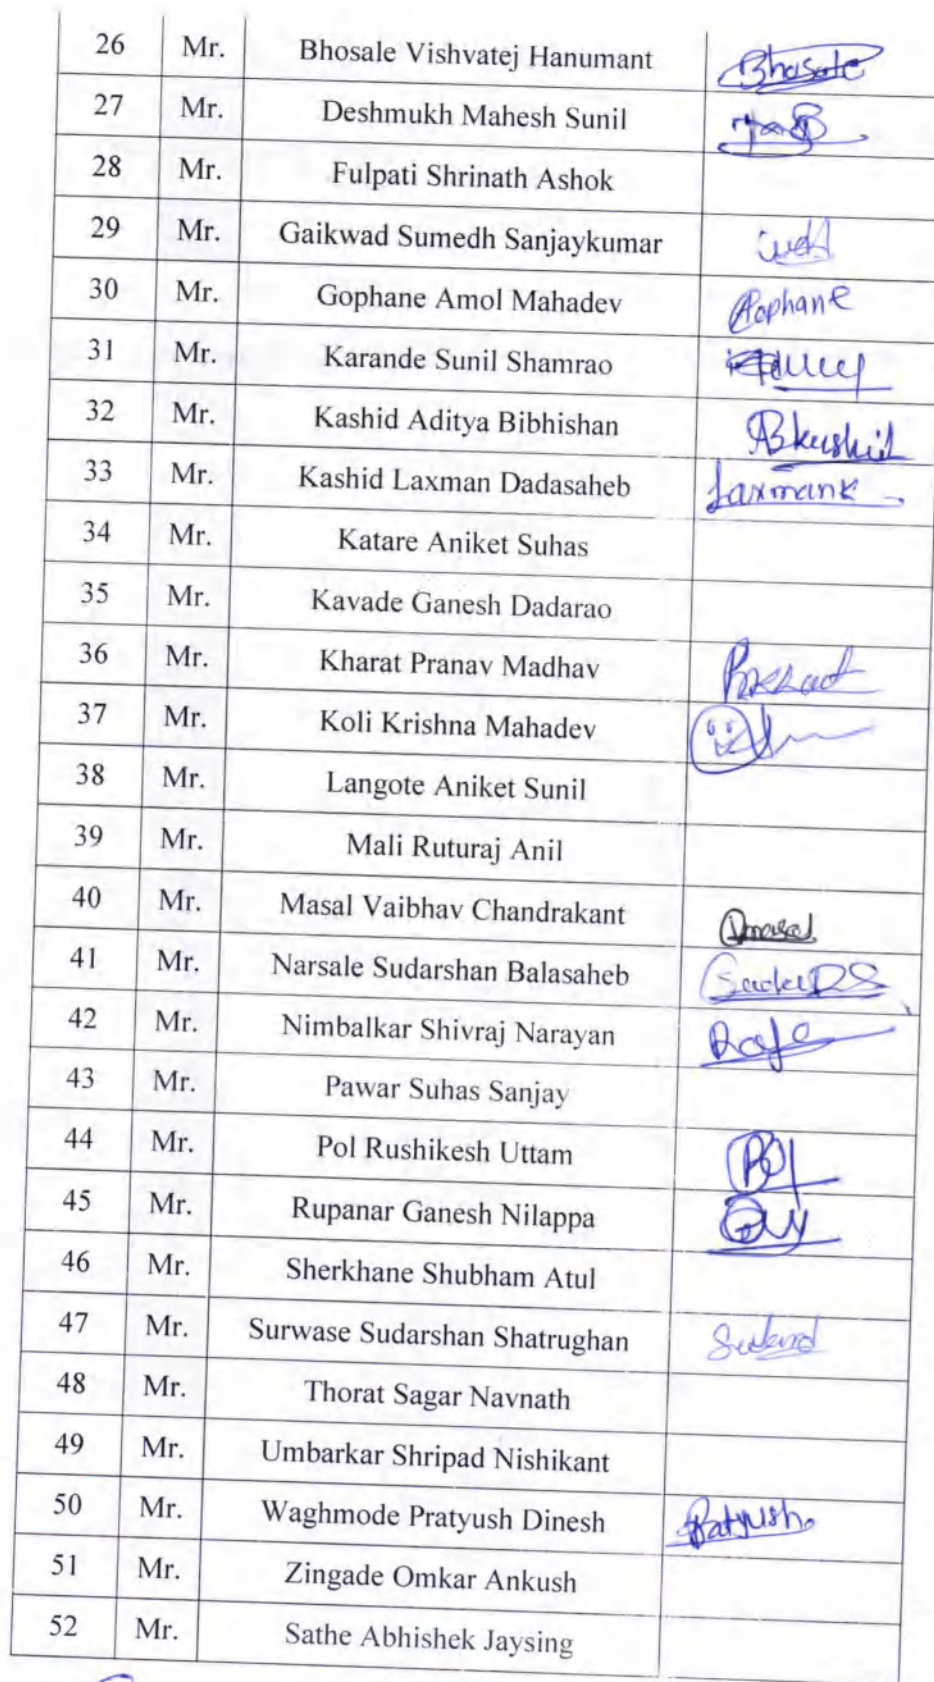 26 Mr. Bhosale Vishvatej Hanumant Bhosale
27 Mr. Deshmukh Mahesh Sunil
28 Mr. Fulpati Shrinath Ashok
29 Mr. Gaikwad Sumedh Sanjaykumar
30 Mr. Gophane Amol Mahadev Gophane
31 Mr. Karande Sunil Shamrao
32 Mr. Kashid Aditya Bibhishan ABkashid
33 Mr. Kashid Laxman Dadasaheb Laxmank
34 Mr. Katare Aniket Suhas
35 Mr. Kavade Ganesh Dadarao
36 Mr. Kharat Pranav Madhav
37 Mr. Koli Krishna Mahadev
38 Mr. Langote Aniket Sunil
39 Mr. Mali Ruturaj Anil
40 Mr. Masal Vaibhav Chandrakant
41 Mr. Narsale Sudarshan Balasaheb
42 Mr. Nimbalkar Shivraj Narayan
43 Mr. Pawar Suhas Sanjay
44 Mr. Pol Rushikesh Uttam Pol
45 Mr. Rupanar Ganesh Nilappa
46 Mr. Sherkhane Shubham Atul
47 Mr. Surwase Sudarshan Shatrughan
48 Mr. Thorat Sagar Navnath
49 Mr. Umbarkar Shripad Nishikant
50 Mr. Waghmode Pratyush Dinesh Patyush
51 Mr. Zingade Omkar Ankush
52 Mr. Sathe Abhishek Jaysing